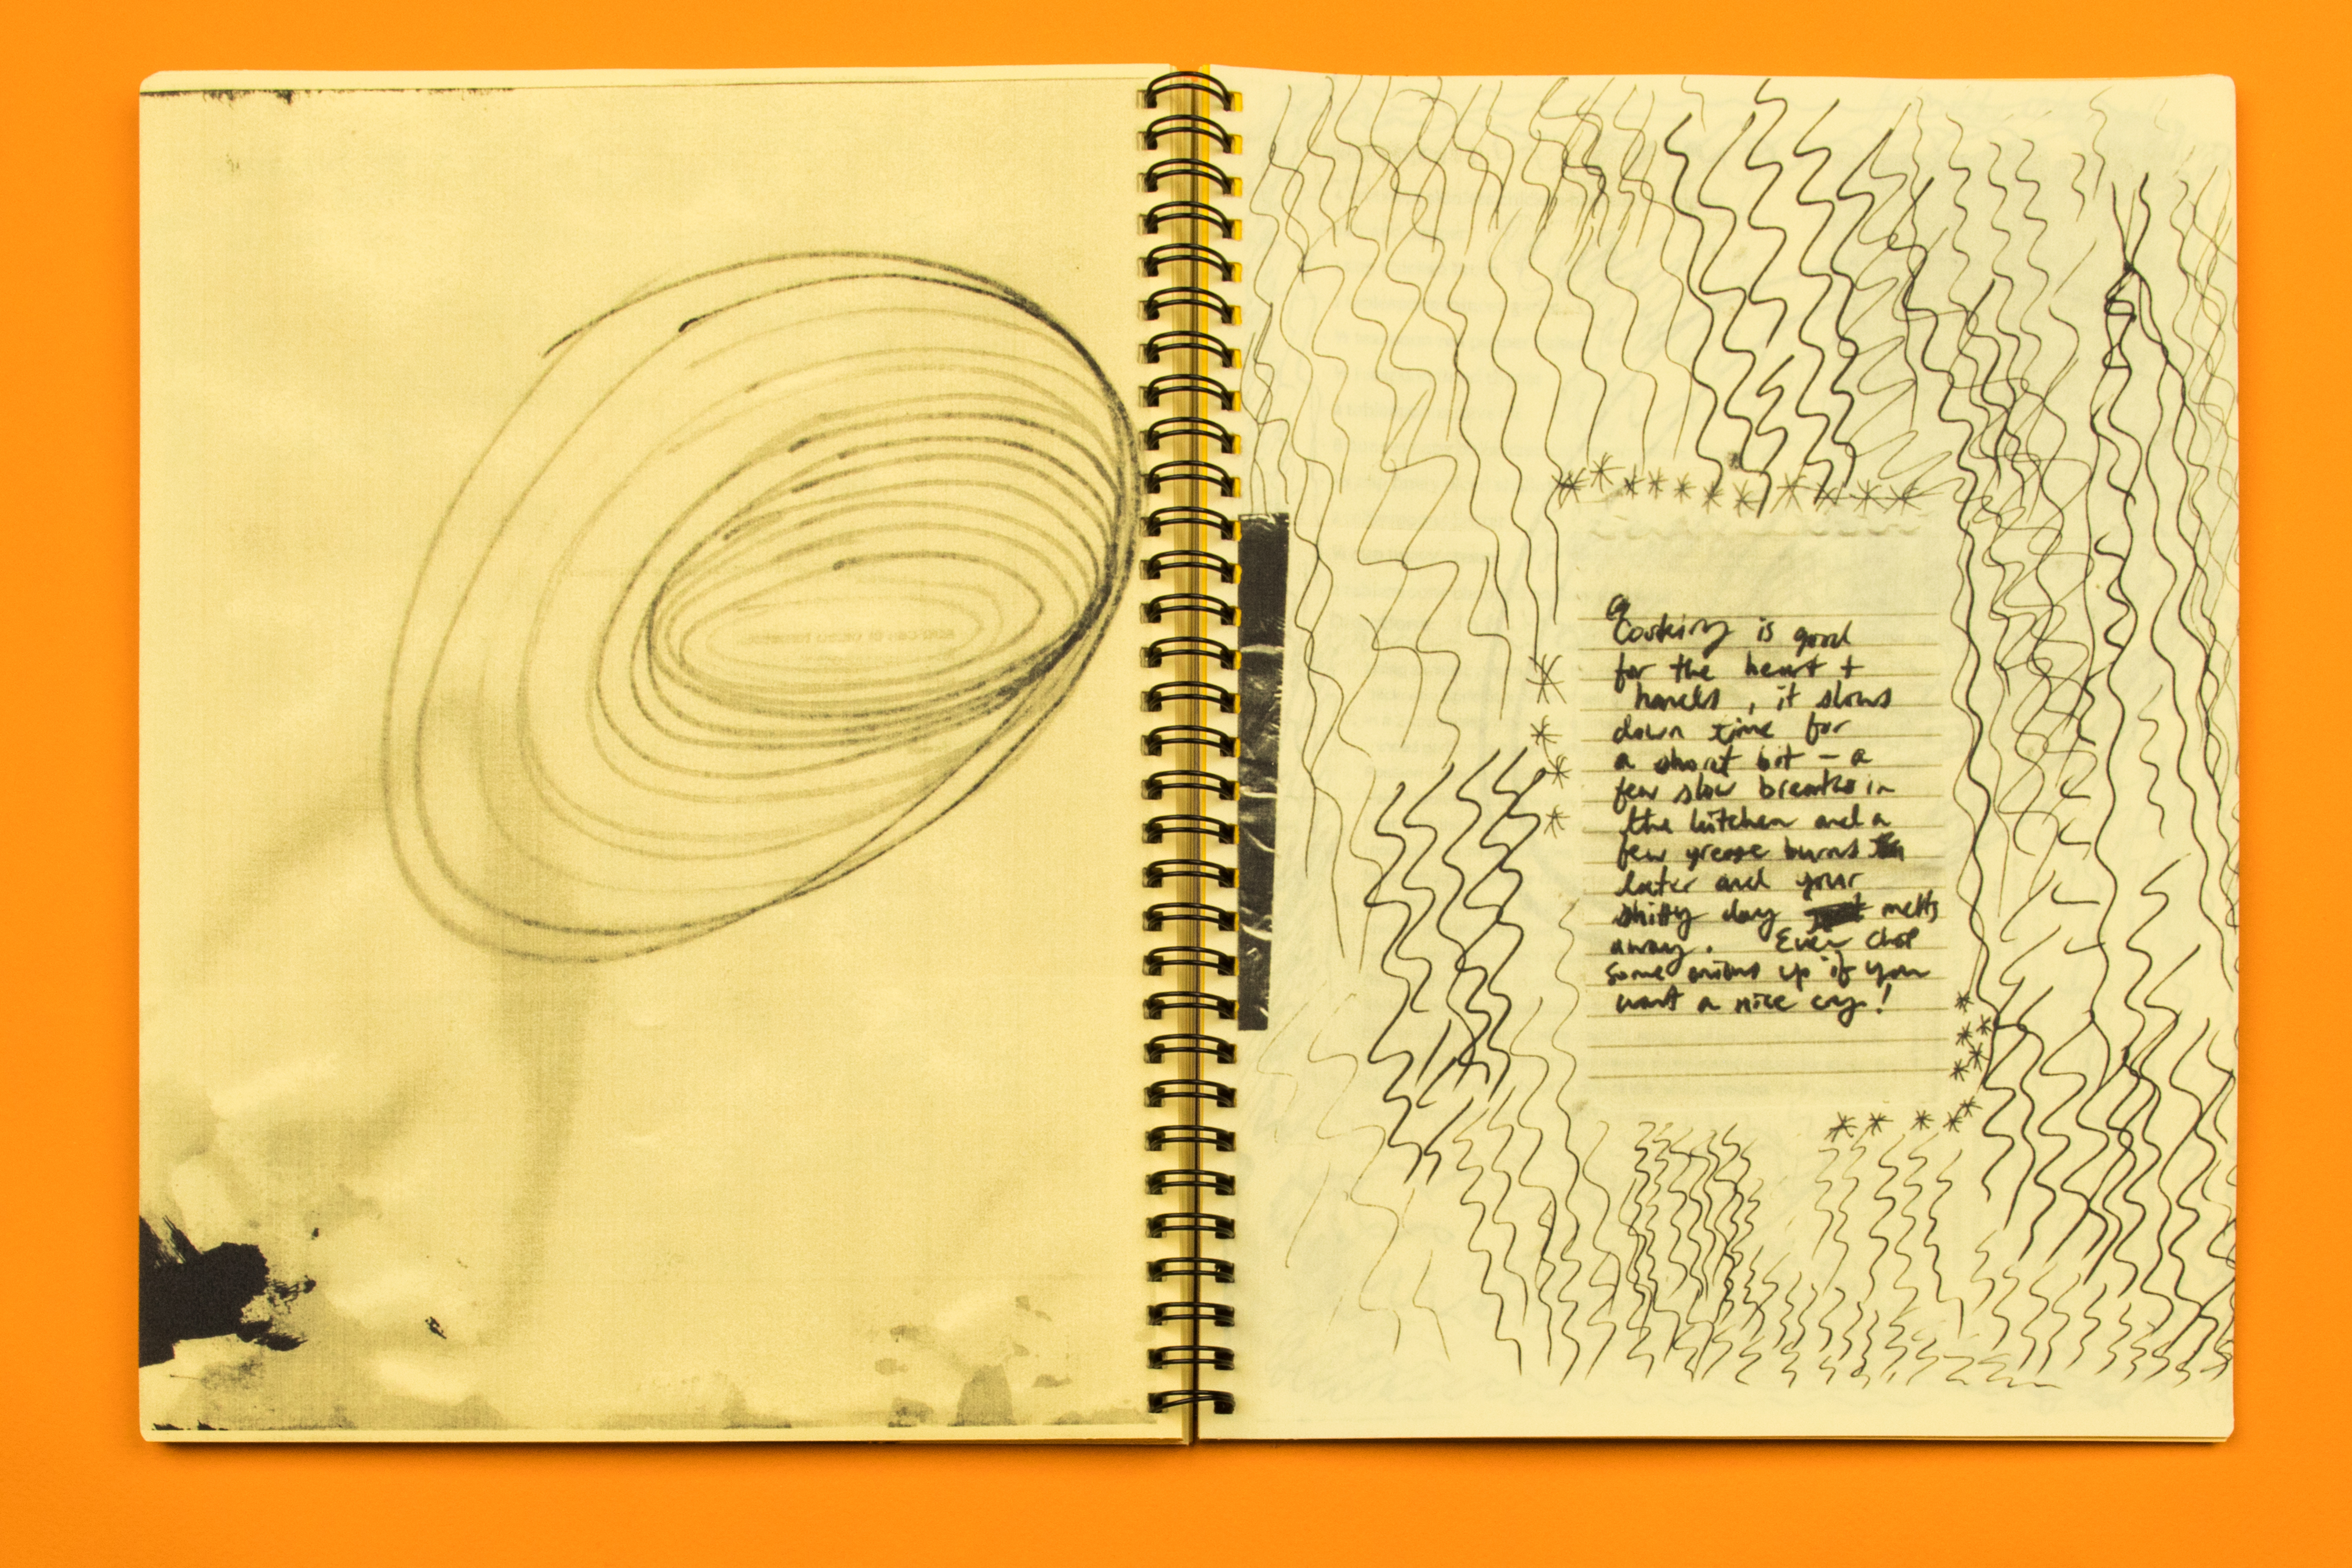 Cooking is good
for the heart +
hands, it slows
down time for
a short bit - a
few slow breaths in
the kitchen and a
few grease burns
later and your
shitty day melts
away. Even chop
some onions up if you
want a nice cry!